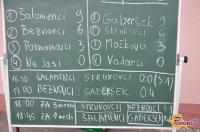 ① ŠALAMENCI 9 ① GABERŠEK 9
② BEZNOVCI 6 ② STRUKOVCI 6
③ POZNANOVCI 3 ③ MOČKOVCI 3
④ NA JASI 0 ④ VADARCI 0
ŠALAMENCI : STRUKOVCI 0:0 (3:1)
17:00 BEZNOVCI : GABERŠEK 0:4
18:10 ZA 3. mesto STRUKOVCI : BEZNOVCI
18:45 ZA 1. mesto ŠALAMENCI : GABERŠEK